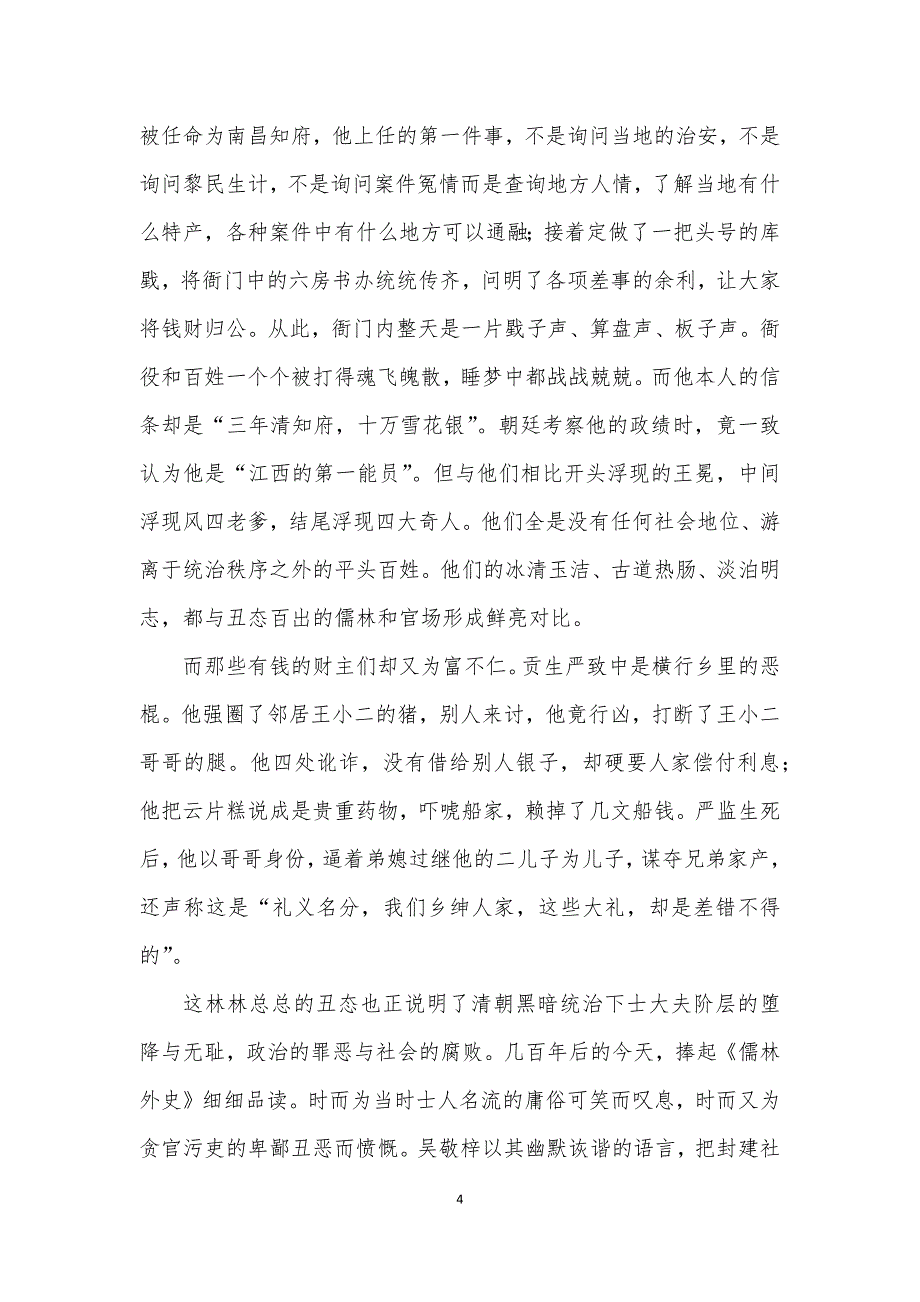 被任命为南昌知府，他上任的第一件事，不是询问当地的治安，不是
询问黎民生计，不是询问案件冤情而是查询地方人情，了解当地有什
么特产，各种案件中有什么地方可以通融；接着定做了一把头号的库
戥，将衙门中的六房书办统统传齐，问明了各项差事的余利，让大家
将钱财归公。从此，衙门内整天是一片戥子声、算盘声、板子声。衙
役和百姓一个个被打得魂飞魄散，睡梦中都战战兢兢。而他本人的信
条却是“三年清知府，十万雪花银”。朝廷考察他的政绩时，竟一致
认为他是“江西的第一能员”。但与他们相比开头浮现的王冕，中间
浮现风四老爹，结尾浮现四大奇人。他们全是没有任何社会地位、游
离于统治秩序之外的平头百姓。他们的冰清玉洁、古道热肠、淡泊明
志，都与丑态百出的儒林和官场形成鲜亮对比。
而那些有钱的财主们却又为富不仁。贡生严致中是横行乡里的恶
棍。他强圈了邻居王小二的猪，别人来讨，他竟行凶，打断了王小二
哥哥的腿。他四处讹诈，没有借给别人银子，却硬要人家偿付利息；
他把云片糕说成是贵重药物，吓唬船家，赖掉了几文船钱。严监生死
后，他以哥哥身份，逼着弟媳过继他的二儿子为儿子，谋夺兄弟家产，
还声称这是“礼义名分，我们乡绅人家，这些大礼，却是差错不得
的”。
这林林总总的丑态也正说明了清朝黑暗统治下士大夫阶层的堕
降与无耻，政治的罪恶与社会的腐败。几百年后的今天，捧起《儒林
外史》细细品读。时而为当时士人名流的庸俗可笑而叹息，时而又为
贪官污吏的卑鄙丑恶而愤慨。吴敬梓以其幽默诙谐的语言，把封建社
4